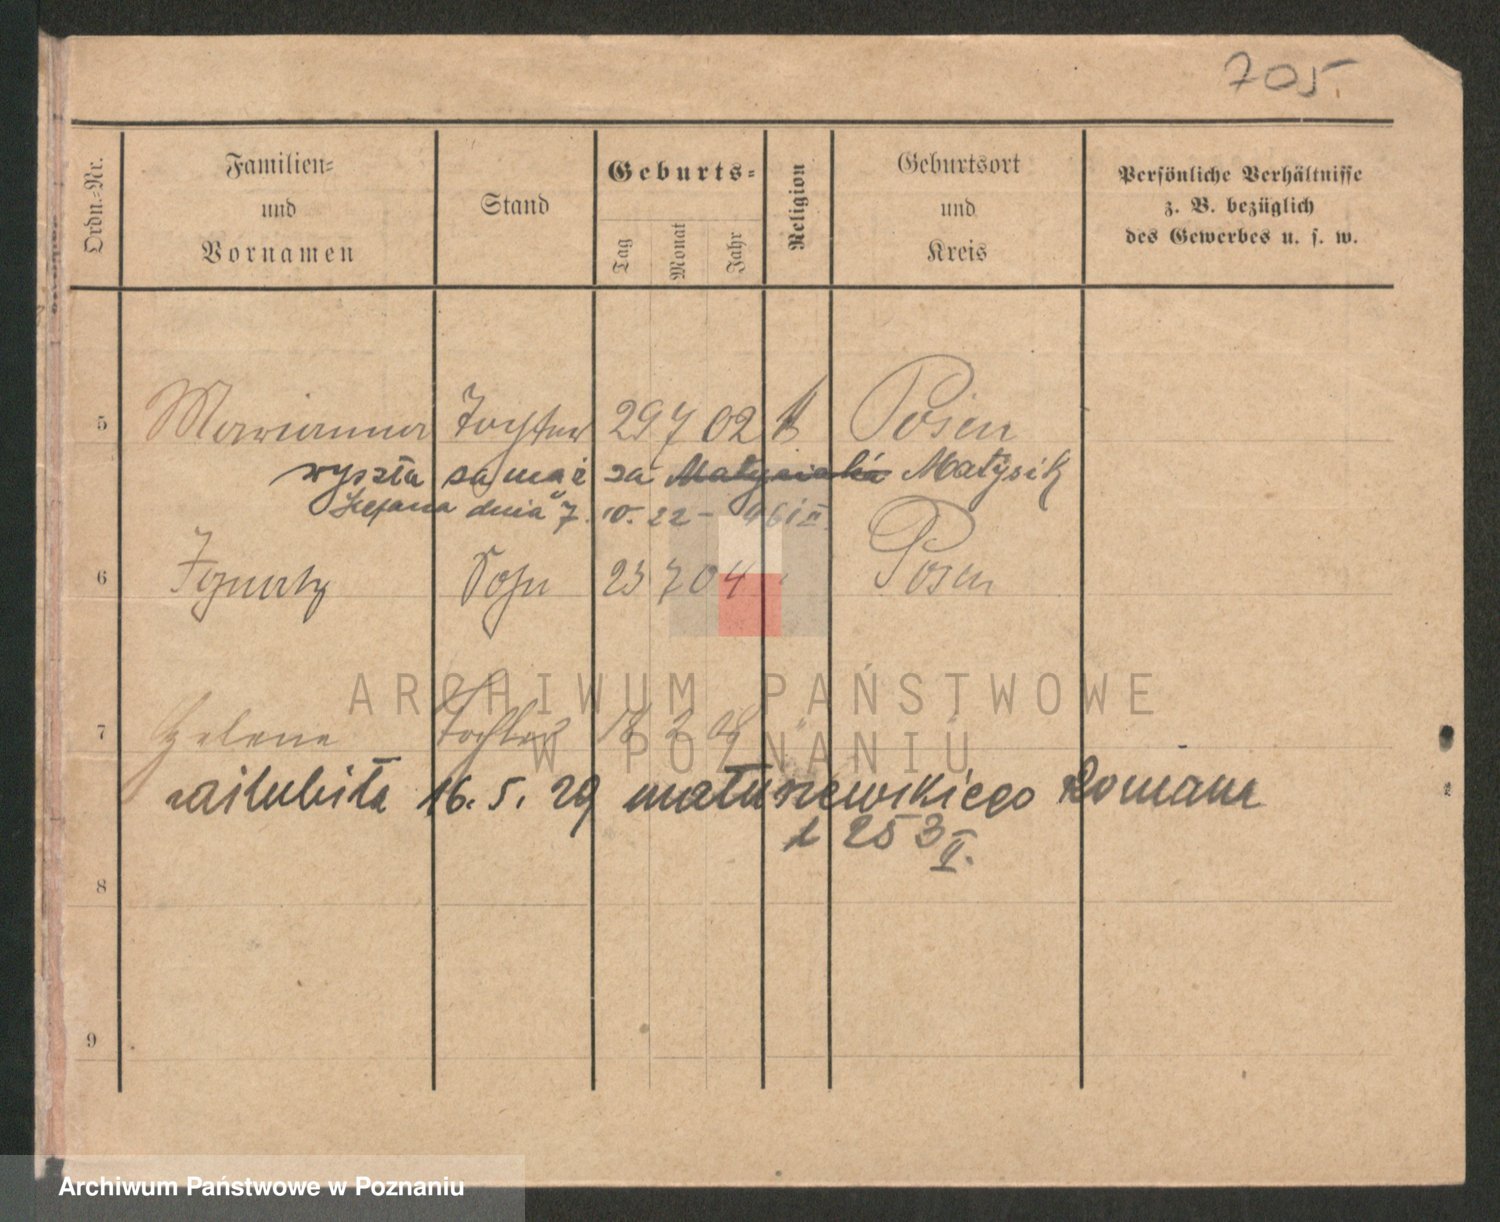 705.
Ordn.-Nr. Familien- und Vornamen Stand Geburts- Tag Monat Jahr Religion Geburtsort und Kreis Persönliche Verhältnisse z. B. bezüglich des Gewerbes u. s. w.
5 Marianna Tochter 29 7 02 k Posen
wyszła za mąż za Matysiaka Matysik
Stefana dnia 7. 10. 22 -
6 Ignatz Sohn 23 7 04 Posen
7 Helene Tochter 18 2
zaślubiła 16. 5. 29 Matuszewskiego Romana
1 253 II.
8
9
ARCHIWUM PAŃSTWOWE
W POZNANIU
Archiwum Państwowe w Poznaniu